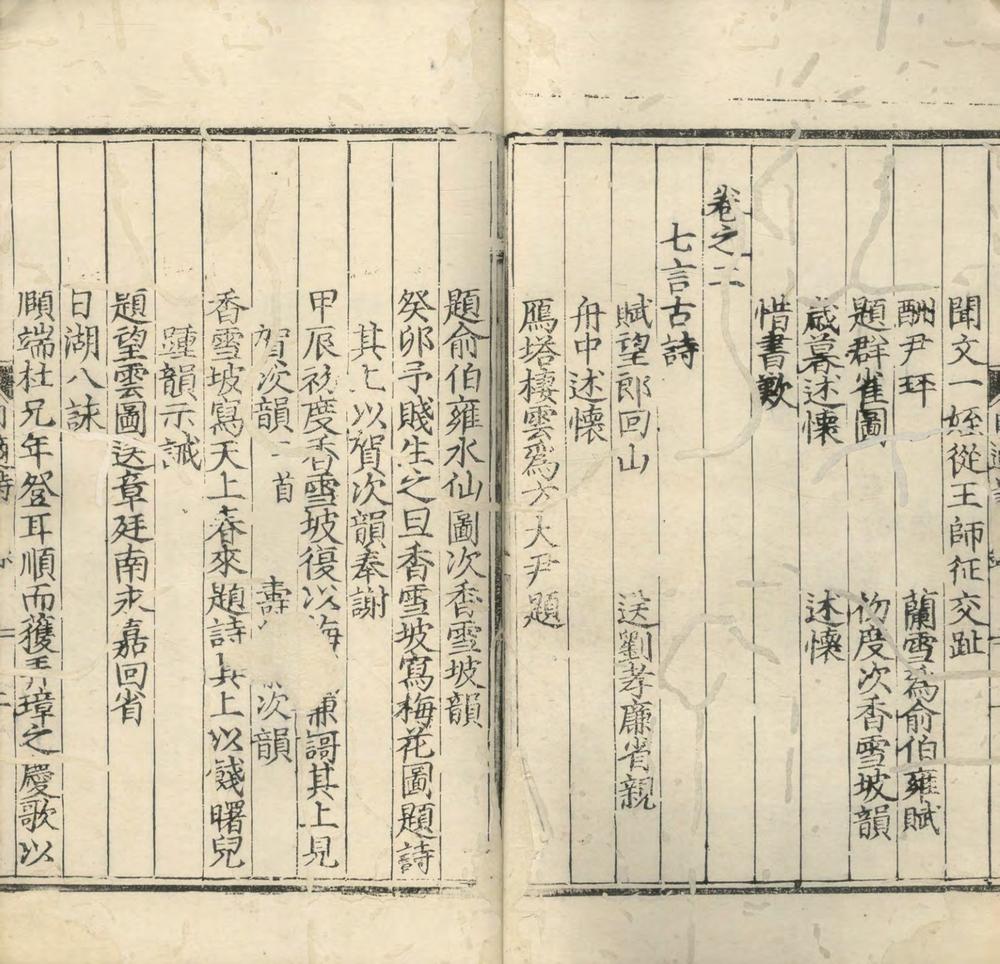 聞文一姪從王師征交趾
酬尹玶 蘭雪為俞伯雍賦
題群雀圖 初度次香雪坡韻
歲暮述懷 述懷
惜書歎
卷之二
七言古詩
賦望郎回山 送劉孝廉省親
舟中述懷
鴈塔棲雲為方大尹題
題俞伯雍水仙圖次香雪坡韻
癸卯予賤生之旦香雪坡寫梅花圖題詩
其上以賀次韻奉謝
甲辰初度香雪坡復以梅 謌其上見
賀次韻 首 壽 次韻
香雪坡寫天上春來題詩其上以餞曙兒
踵韻示誡
題望雲圖送章廷南永嘉回省
日湖八詠
頤端杜兄年登耳順而獲弄璋之慶歌以